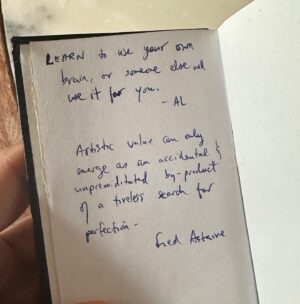 LEARN to use your own
brain, or someone else will
use it for you.
- AL
Artistic value can only
emerge as an accidental &
unpremiditated by-product
of a tireless search for
perfection -
Fred Astaire